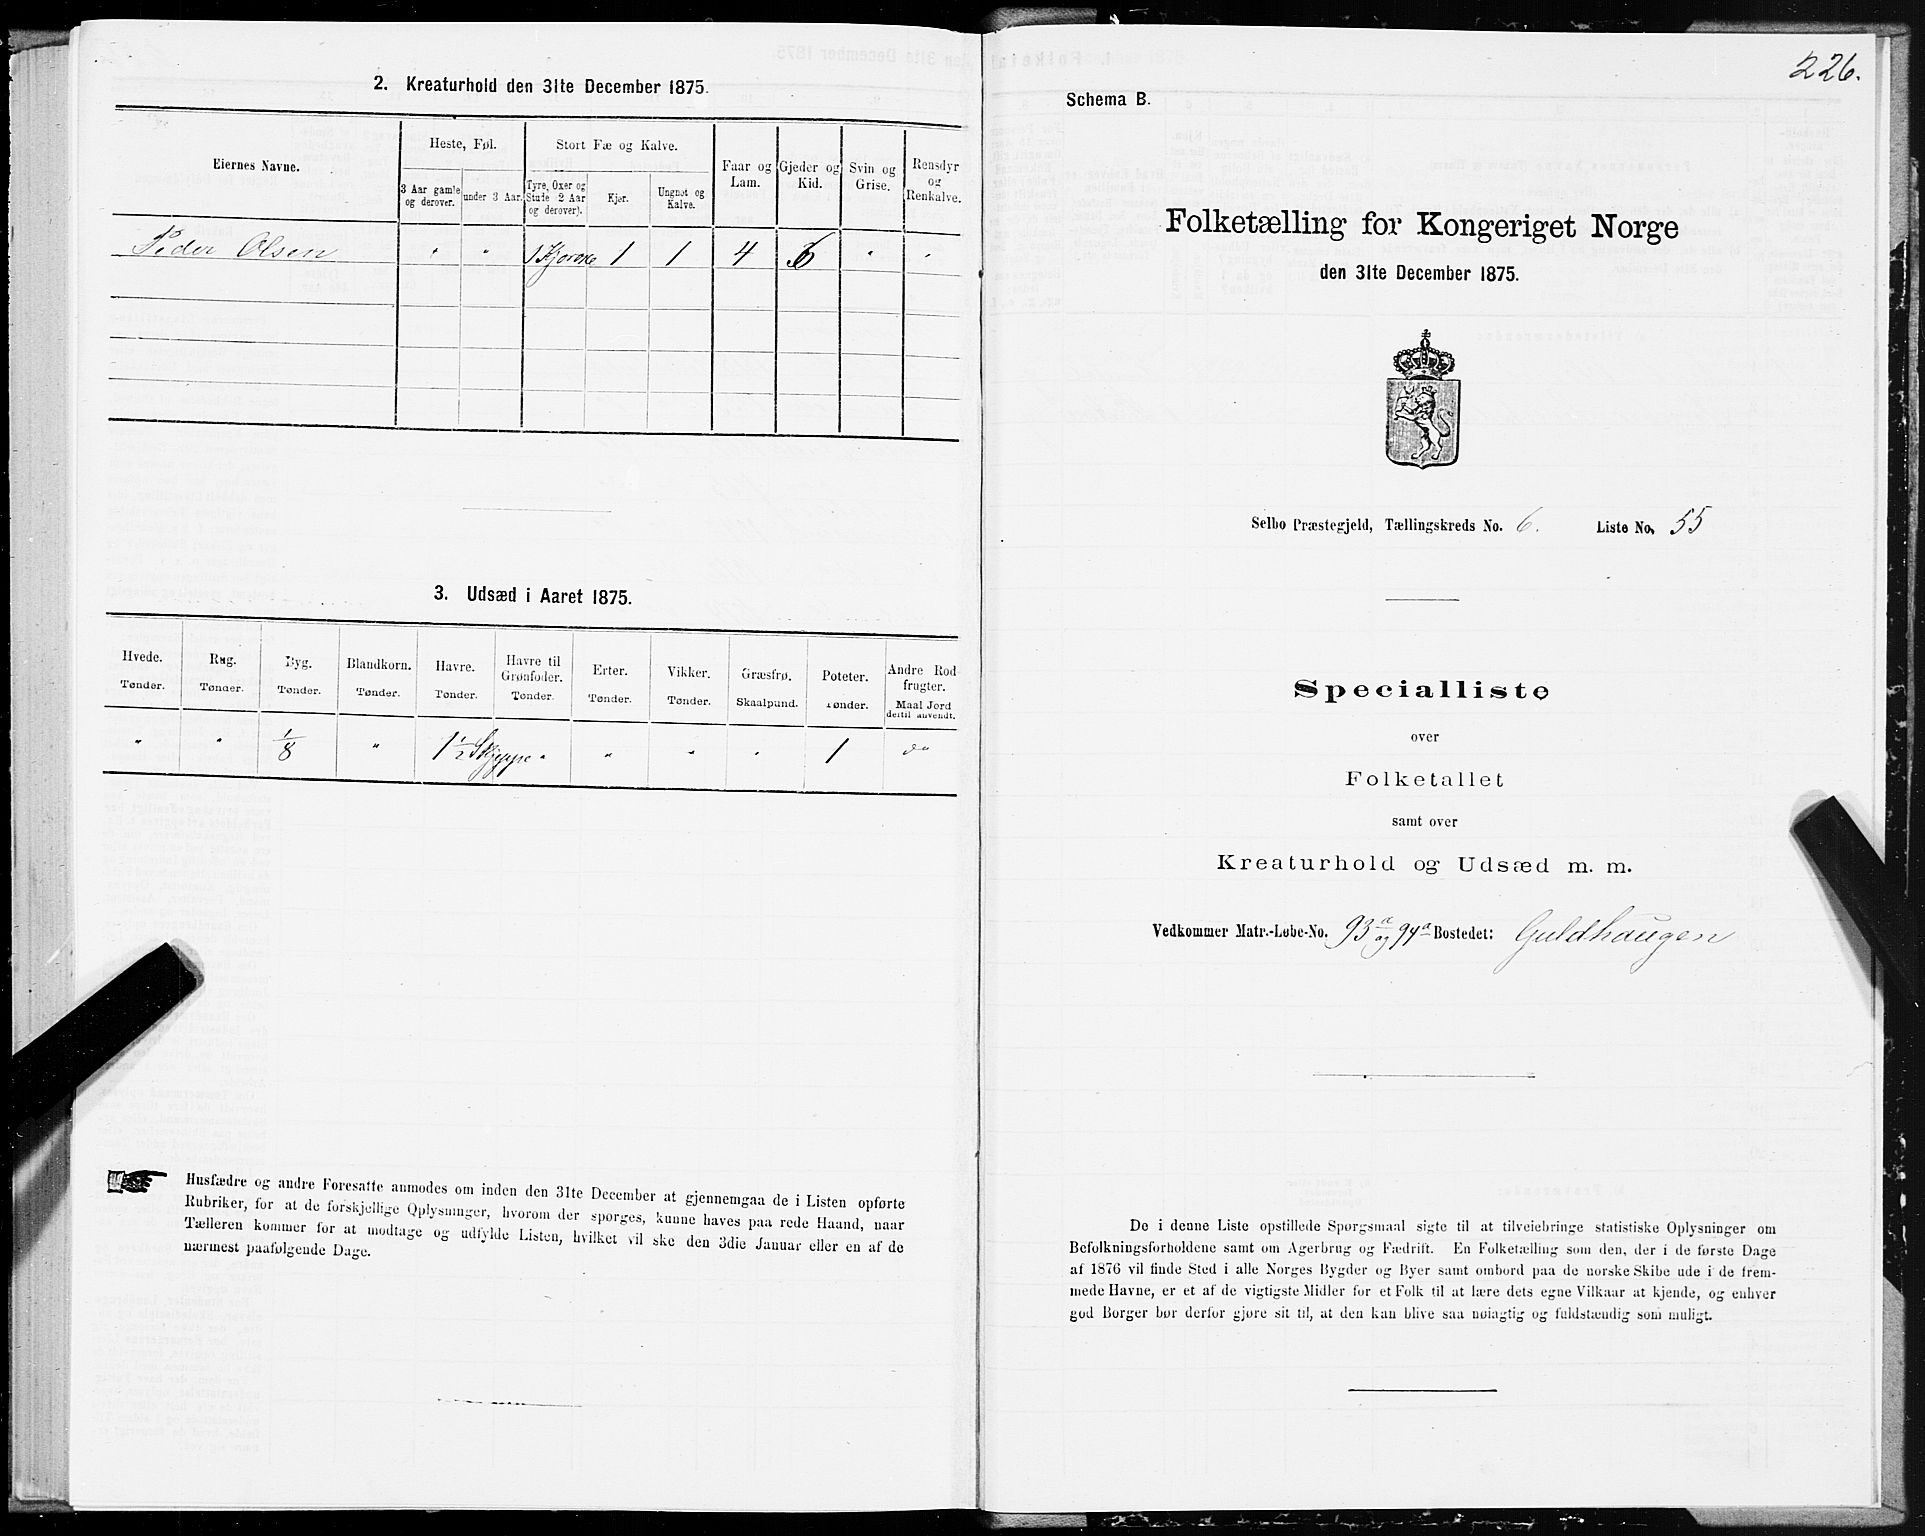 2. Kreaturhold den 31te December 1875.
Eiernes Navne.
Heste, Føl.
Stort Fæ og Kalve.
Faar og Lam.
Gjeder og Kid.
Svin og Grise.
Rensdyr og Renkalve.
3 Aar gamle og derover.
under 3 Aar.
Tyre, Oxer og Stude 2 Aar og derover).
Kjør.
Ungnøt og Kalve.
Peder Olsen " " 1 1 1 4 6 " "
3. Udsæd i Aaret 1875.
Hvede. Rug. Byg. Blandkorn. Havre. Havre til Grønfoder. Erter. Vikker. Græsfrø. Poteter. Andre Rodfrugter.
Tønder. Tønder. Tønder. Tønder. Tønder. Tønder. Tønder. Tønder. Skaalpund. Tønder. Maal Jord dertil anvendt.
" " 1/8 " 1 1/2 Skjeppe " " " " 1
Husfædre og andre Foresatte anmodes om inden den 31te December at gjennemgaa de i Listen opførte
Rubriker, for at de forskjellige Oplysninger, hvorom der spørges, kunne haves paa rede Haand, naar
Tælleren kommer for at modtage og udfylde Listen, hvilket vil ske den 3die Januar eller en af de
nærmest paafølgende Dage.
226.
Schema B.
Folketælling for Kongeriget Norge
den 31te December 1875.
Selbo Præstegjeld, Tællingskreds No. 6. Liste No. 55
Specialliste
over
Folketallet
samt over
Kreaturhold og Udsæd m. m.
Vedkommer Matr.-Løbe-No. 93a og 94a Bostedet: Guldhaugen
De i denne Liste opstillede Spørgsmaal sigte til at tilveiebringe statistiske Oplysninger om
Befolkningsforholdene samt om Agerbrug og Fædrift. En Folketælling som den, der i de første Dage
af 1876 vil finde Sted i alle Norges Bygder og Byer samt ombord paa de norske Skibe ude i de frem-
mede Havne, er et af de vigtigste Midler for et Folk til at lære dets egne Vilkaar at kjende, og enhver
god Borger bør derfor gjøre sit til, at den kan blive saa nøiagtig og fuldstændig som muligt.